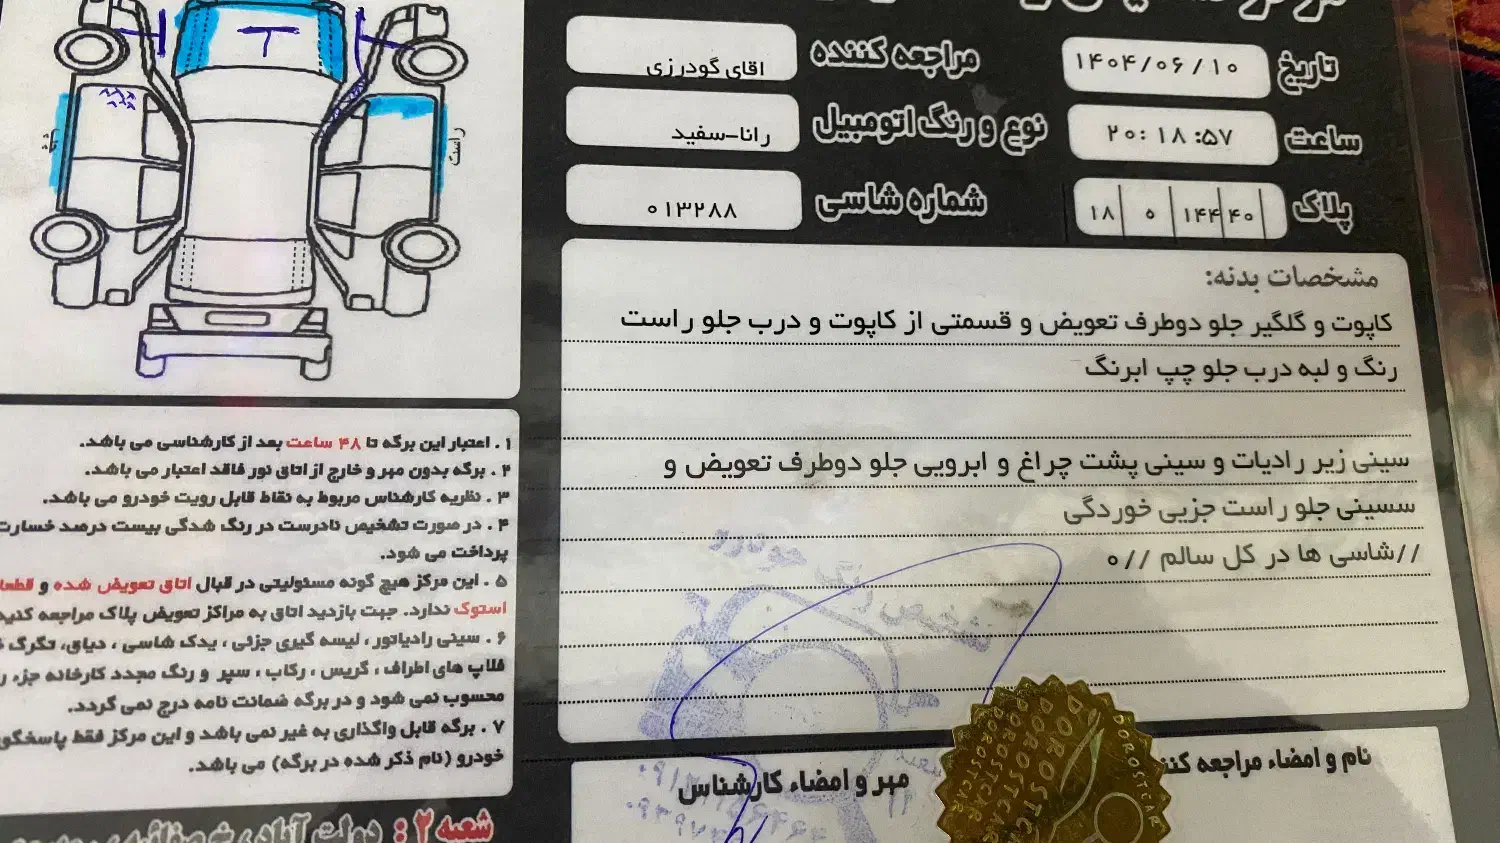 تاریخ
۱۴۰۴/۰۶/۱۰
مراجعه کننده
اقای گودرزی
ساعت
۲۰:۱۸:۵۷
نوع و رنگ اتومبیل
رانا-سفید
پلاک
۱۸ ۵ ۱۴۴ ۴۰
شماره شاسی
۰۱۳۲۸۸
مشخصات بدنه:
کاپوت و گلگیر جلو دوطرف تعویض و قسمتی از کاپوت و درب جلو راست
رنگ و لبه درب جلو چپ ابرنگ
سینی زیر رادیات و سینی پشت چراغ و ابرویی جلو دوطرف تعویض و
سسینی جلو راست جزیی خوردگی
//شاسی ها در کل سالم //۰
نام و امضاء مراجعه کننده
مهر و امضاء کارشناس
تشخیص رنگ خودرو
DOROSTCAR
راست
۱. اعتبار این برگه تا ۴۸ ساعت بعد از کارشناسی می باشد.
۲. برگه بدون مهر و خارج از اتاق نور فاقد اعتبار می باشد.
۳. نظریه کارشناس مربوط به نقاط قابل رویت خودرو می باشد.
۴. در صورت تشخیص نادرست در رنگ شدگی بیست درصد خسارت
پرداخت می شود.
۵. این مرکز هیچ گونه مسئولیتی در قبال اتاق تعویض شده و
استوک ندارد. جهت بازدید اتاق به مراکز تعویض پلاک مراجعه کنید
۶. سینی رادیاتور، لیسه گیری جزئی، یدک شاسی، دیاق، تگرگ
فلاپ های اطراف، گریس، رکاب، سپر و رنگ مجدد کارخانه جزء
محسوب نمی شود و در برگه ضمانت نامه درج نمی گردد.
۷. برگه قابل واگذاری به غیر نمی باشد و این مرکز فقط پاسخگو
خودرو (نام ذکر شده در برگه) می باشد.
شعبه ۲: دولت آباد،